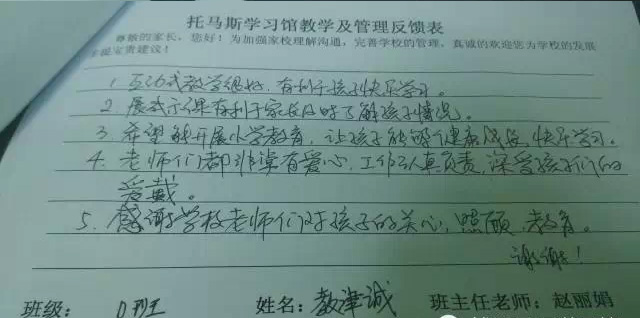 托马斯学习馆教学及管理反馈表
尊敬的家长，您好！为加强家校理解沟通，完善学校的管理，真诚的欢迎您为学校的发展
提宝贵建议！
1. 互动式教学很好，有利于孩子快乐学习。
2. 展示课有利于家长及时了解孩子情况。
3. 希望能开展小学教育，让孩子能够健康成长，快乐学习。
4. 老师们都非常有爱心，工作认真负责，深受孩子们的
爱戴。
5. 感谢学校老师们对孩子的关心、照顾、教育。
谢谢！
班级： D班 姓名：敖津诚 班主任老师：赵丽娟